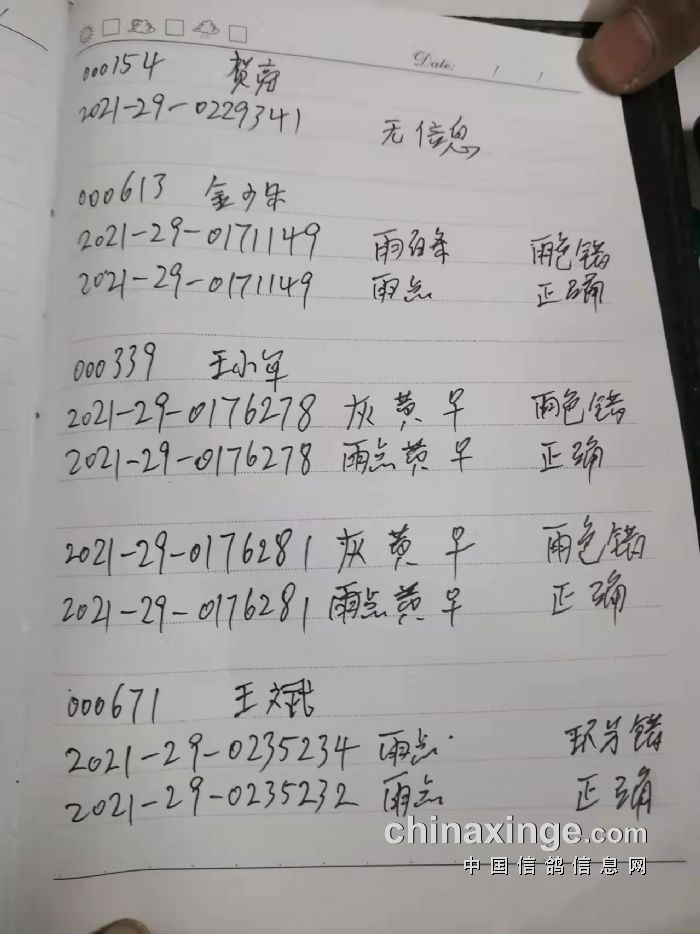 Date:
000154 贺
2021-29-0229341
无信息
000613 金少
2021-29-0171149 雨白 雨色错
2021-29-0171149 雨点 正确
000339 王小军
2021-29-0176278 灰黄 早 雨色错
2021-29-0176278 雨点黄 早 正确
2021-29-0176281 灰黄 早 雨色错
2021-29-0176281 雨点黄 早 正确
000671 王斌
2021-29-0235234 雨点 环号错
2021-29-0235232 雨点 正确
chinaxinge.com
中国信鸽信息网